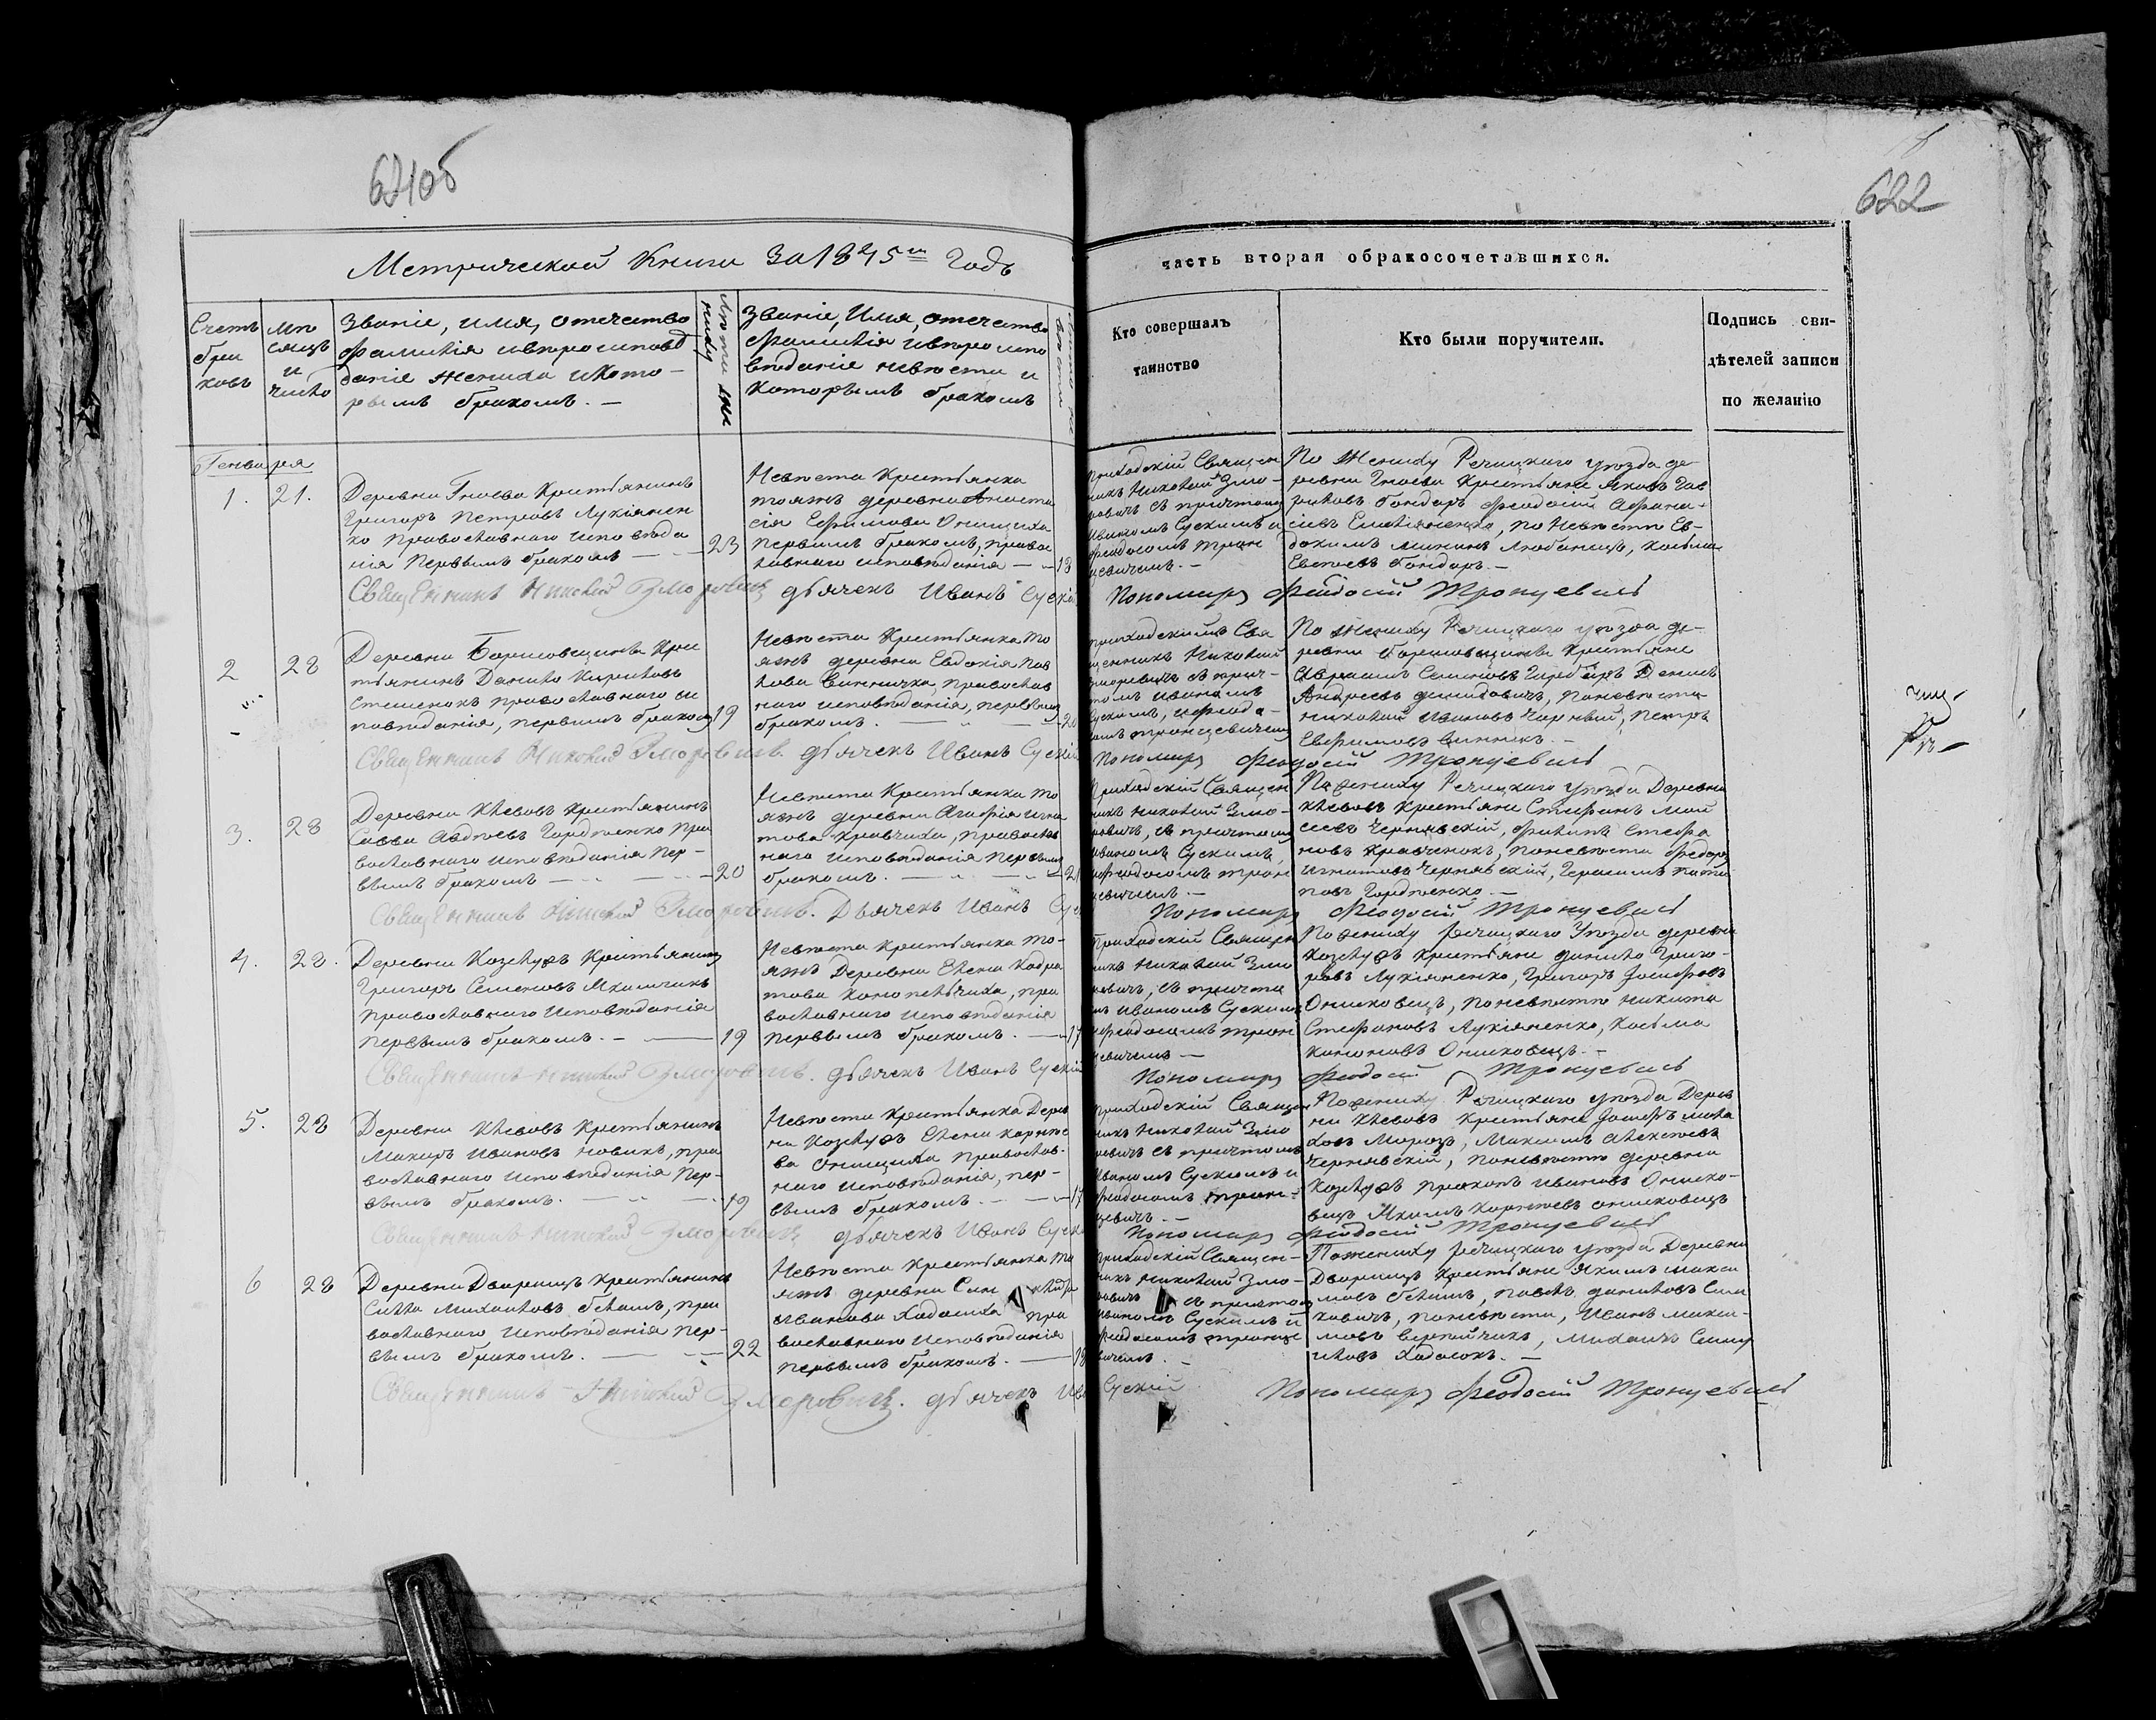 621об
622
Метрической Книги за 1845й Годъ
часть вторая обракосочетавшихся.
Счетъ
бра
ковъ
мѣ
сяцъ
и
число
Званіе, имя, отечество
фамилія ивероисповѣ
даніе жениха икото-
рымъ бракомъ. —
Званіе, Имя, отечество
фамилія иверо испо
вѣданіе невѣсты и
которымъ бракомъ
Кто совершалъ
таинство
Кто были поручители.
Подпись сви-
дѣтелей записи
по желанію
Генваря
1. 21.
Деревни Гноева Крестьянинъ
Григоръ Петровъ Лукіянен
ко Православнаго исповѣда
нія Первымъ бракомъ — 23
Невѣста Крестьянка
тояжъ деревни Анаста
сія Ефимова Онищиха
первымъ бракомъ, правос
лавнаго исповѣданія — 18
Приходскій Священ
никъ Николай Змо-
ровичъ съ причтомъ
Иваномъ Сускимъ и
Феодосомъ Трон
цевичемъ. —
По Жениху Речицкаго уѣзда де-
ревни Гноева Крестьяне Яковъ Гав
риловъ Бондаръ Феодосій Афана-
сіевъ Емельяненко, по Невѣсте Ев-
докимъ Мининъ Любанецъ, козьма
Евсѣевъ Бондаръ. —
Священникъ Николай Зморовичъ дьячекъ Иванъ Сускій
Пономаръ Феодосій Тронцевичъ
2 28
Деревни Борисовщины Крес
тьянинъ Данило Кириловъ
Стешенокъ православнаго ис
повѣданія, первымъ бракомъ 19
Невѣста Крестьянка то
яжъ деревни Евдокія Пав
лова Винничка, православ
наго исповѣданія, первымъ
бракомъ. — 20
приходскимъ Свя
щенникъ Николай
Зморовичъ съ прич-
томъ Иваномъ
Сускимъ, иФеодо-
сомъ Тронцевичемъ
По Жениху Речицкаго уѣзда де-
ревни борисовщины Крестьяне
Авраамъ Семеновъ Денисъ
Андреевъ поневѣсте
николай Ивановъ Чорный, Петръ
Евфимовъ винникъ. —
Священникъ Николай Зморовичъ. дьячекъ Иванъ Сускій
Пономаръ Феодосій Тронцевичъ
3. 28
Деревни Хлевовъ Крестьянинъ
Савва Авдѣевъ Гордѣенко Пра
вославнаго исповѣданія Пер-
вымъ бракомъ — 20
Невѣста Крестьянка то
яжъ деревни Агафія игна
това Кравчиха, Православ
наго исповѣданія первымъ
бракомъ. — 21
Приходскій Священ
никъ Николай Змо-
ровичъ, съ причтомъ
Иваномъ Сускимъ,
иФеодосомъ трон
цевичемъ. —
Пожениху Речицкаго уѣзда Деревни
хлевовъ Крестьяне Стефанъ Мои
сеевъ Чернявскій, филипъ Стефа
новъ Кравченокъ, поневѣсте Федоръ
Игнатовъ Чернявскій, Герасимъ
повъ Гордѣенко. —
Священникъ Николай Зморовичъ. Дьячекъ Иванъ Сус
Пономаръ Феодосій Тронцевичъ
4. 28.
Деревни Козлуфъ Крестьянинъ
Григоръ Семеновъ Якимчикъ
Православнаго Исповѣданія
Первымъ бракомъ. — 19
Невѣста Крестьянка то-
яжъ Деревни Елена Кодра
това Коноплѣчиха, пра
вославнаго исповѣданія
первымъ бракомъ. — 17
Приходскій Священ
никъ Николай Змо
ровичъ, съ причто
мъ Иваномъ Сускимъ
иФеодосомъ трон
цевичемъ —
Пожениху речицкаго Уѣзда деревни
Козлуфъ крестьяне данило Григо-
ровъ Лукіяненко, Григоръ Іосифовъ
Онисковецъ, поневѣсте никита
Стефановъ Лукіяненко, Козьма
Кононовъ Онисковецъ. —
Священникъ Николай Зморовичъ. дьячекъ Иванъ Сускій
Пономаръ Феодосій Тронцевичъ
5. 28
Деревни Хлевовъ Крестьянинъ
Макаръ Ивановъ Новикъ, пра
вославнаго исповѣданія пер-
вымъ бракомъ. — 19
Невѣста Крестьянка Дерев
ни Козлуфъ Елена Корнѣе
ва Онищиха Православ-
наго исповѣданія, пер-
вымъ бракомъ. — 17
Приходскій Священ
никъ Николай Змо
ровичъ съ причтомъ
Иваномъ Сускимъ и
Феодосомъ трон-
цевичъ. —
Пожениху Речицкаго уѣзда Дерев
ни Хлевовъ Крестьяне Іосифъ миха
ловъ Морозъ, Максимъ Алексѣевъ
Чернявскій, поневѣсте деревни
Козлуфъ прокопъ Ивановъ Ониско-
вецъ Якимъ Корнѣевъ онисковецъ
Священникъ Николай Зморовичъ дьячекъ Иванъ Суск
Пономаръ Феодосій Тронцевичъ
6 28
Деревни Дворищъ Крестьянинъ
Силка Михаиловъ бѣлашъ, пра
вославнаго Исповѣданія пер-
вымъ бракомъ. — 22
Невѣста Крестьянка то
яжъ деревни
Иванова Ходосиха пра
вославнаго Исповѣданія
первымъ бракомъ. — 18
Приходскій Священ-
никъ Николай Змо-
ровичъ съ причтомъ
Иваномъ Сускимъ и
Феодосомъ Тронце
вичемъ. —
Пожениху речицкаго уѣзда Деревни
Дворищъ Крестьяне Якимъ макси
мовъ бѣлашъ, павелъ даниловъ Сини
ковичъ, поневѣсте, Иванъ макси-
мовъ Михаилъ Саму
иловъ Ходосокъ. —
Священникъ Николай Зморовичъ. дьячекъ Ива
Сускій Пономаръ Феодосій Тронцевичъ